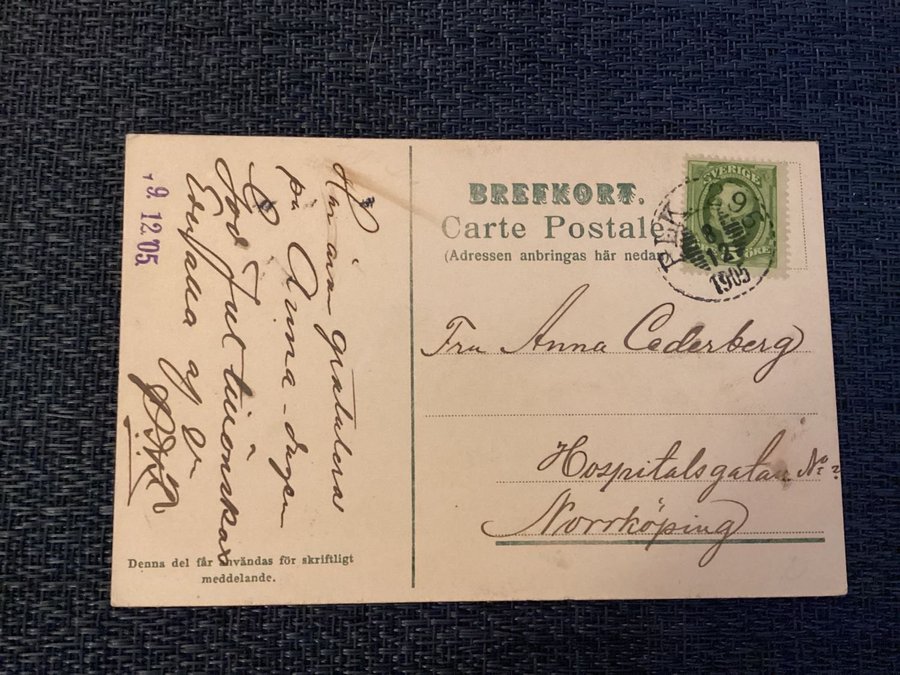 BREFKORT.
Carte Postale
(Adressen anbringas här nedan
SVERIGE
PLK
9
12
1905
ÖRE
Fru Anna Cederberg
Hospitalsgatan No 2
Norrköping
9.12.05
gratulera
på Anna-dagen
God Jul tillönskas
af
Denna del får användas för skriftligt
meddelande.